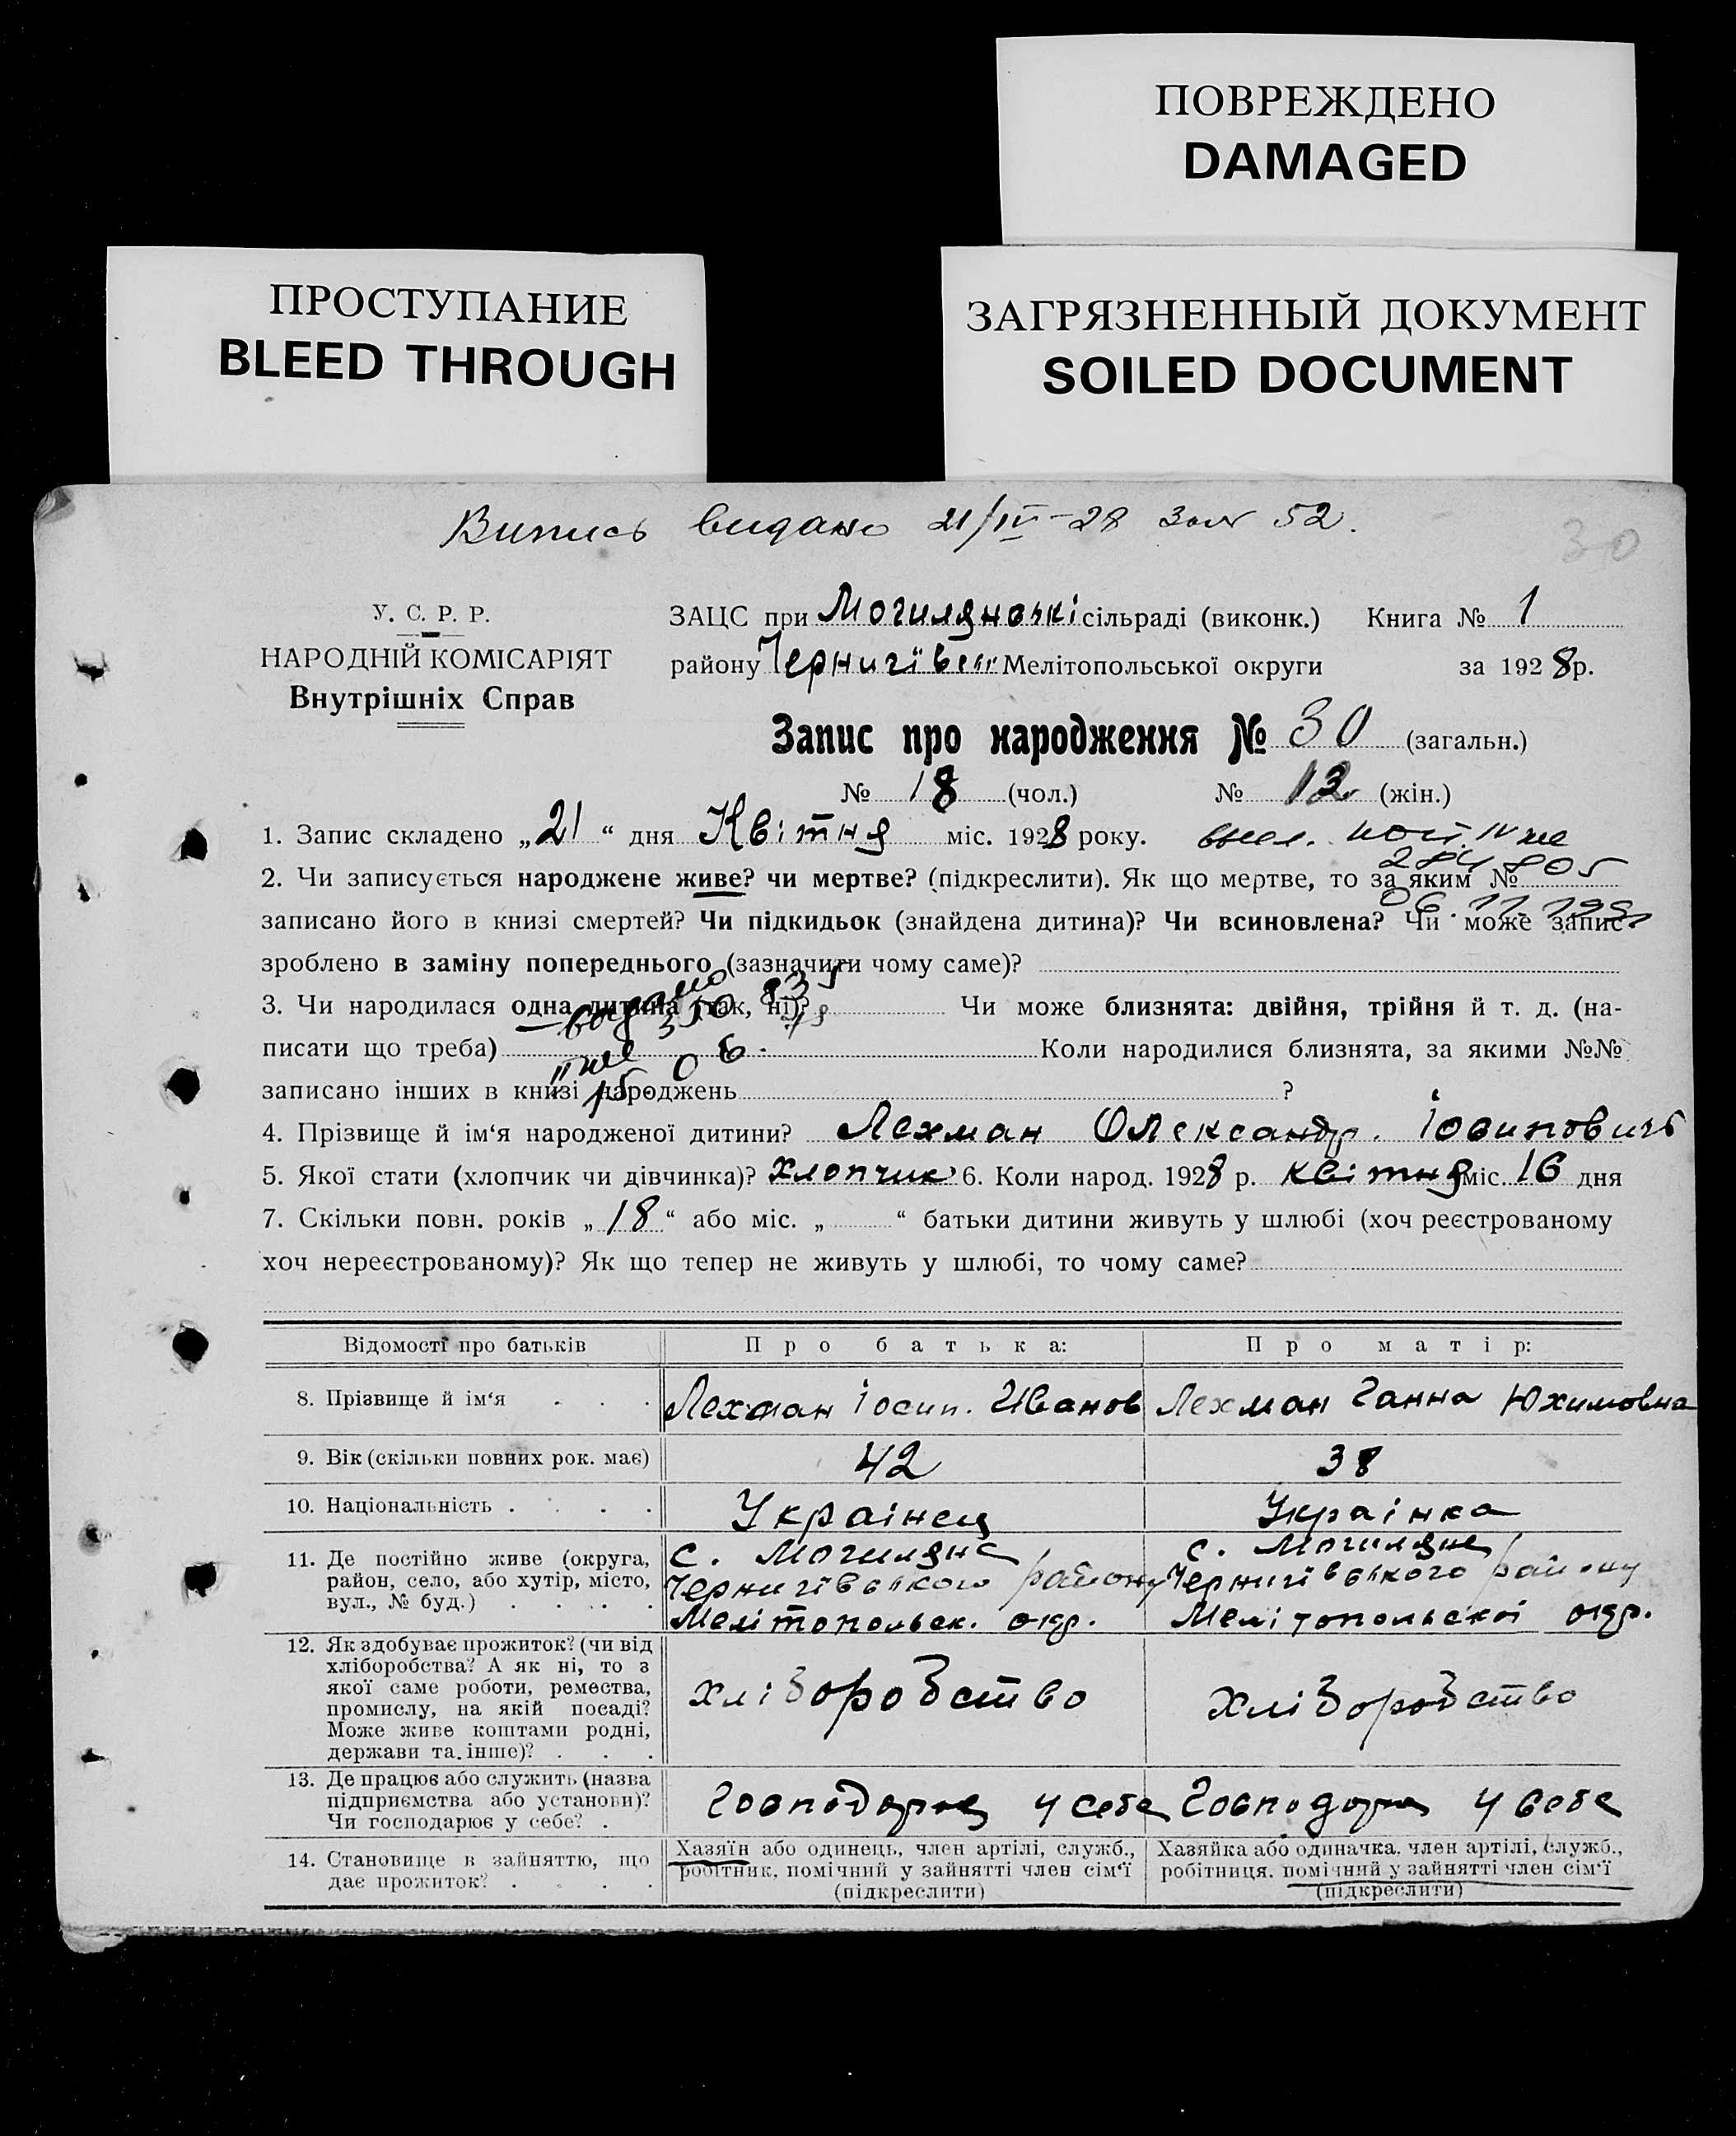 ПОВРЕЖДЕНО
DAMAGED
ПРОСТУПАНИЕ
BLEED THROUGH
ЗАГРЯЗНЕННЫЙ ДОКУМЕНТ
SOILED DOCUMENT
Випись видано 21/IV-28 52.
30
У. С. Р. Р.
НАРОДНІЙ КОМІСАРІЯТ
Внутрішніх Справ
ЗАЦС при Могиляноські сільраді (виконк.) Книга № 1
району Чернигівськ Мелітопольської округи за 1928 р.
Запис про народження № 30 (загальн.)
№ 18 (чол.) № 12 (жін.)
1. Запис складено „21“ дня Квітня міс. 1928 року.
2. Чи записується народжене живе? чи мертве? (підкреслити). Як що мертве, то за яким №
284805
записано його в книзі смертей? Чи підкидьок (знайдена дитина)? Чи всиновлена? Чи може запис
зроблено в заміну попереднього (зазначити чому саме)?
3. Чи народилася одна дитина (так, ні)? Чи може близнята: двійня, трійня й т. д. (на-
писати що треба) Коли народилися близнята, за якими №№
записано інших в книзі народжень ?
4. Прізвище й ім‘я народженої дитини? Лехман Олександр. Іосипович
5. Якої стати (хлопчик чи дівчинка)? Хлопчик 6. Коли народ. 1928 р. квітня міс. 16 дня
7. Скільки повн. років „18“ або міс. „ “ батьки дитини живуть у шлюбі (хоч реєстрованому
хоч нереєстрованому)? Як що тепер не живуть у шлюбі, то чому саме?
Відомості про батьків Про батька: Про матір:
8. Прізвище й ім‘я . . . Лехман іосип. Иванов Лехман Ганна Юхимовна
9. Вік (скільки повних рок. має) 42 38
10. Національність . . . . Украінец Украінка
11. Де постійно живе (округа, район, село, або хутір, місто, вул., № буд.) . . . .
с. Могиляне
Чернигівського району
Мелітопольск. окр.
с. Могиляне
Чернигівського району
Мелітопольскоі окр.
12. Як здобуває прожиток? (чи від
хліборобства? А як ні, то з
якої саме роботи, ремества,
промислу, на якій посаді?
Може живе коштами родні,
держави та. інше)? . . .
хліборобство хліборобство
13. Де працює або служить (назва
підприємства або установи)?
Чи господарює у себе? .
Господарює у себе Господарює у себе
14. Становище в зайняттю, що
дає прожиток? . . . .
Хазяїн або одинець, член артілі, служб.,
робітник, помічний у зайнятті член сім‘ї
(підкреслити)
Хазяйка або одиначка, член артілі, служб.,
робітниця, помічний у зайнятті член сім‘ї
(підкреслити)